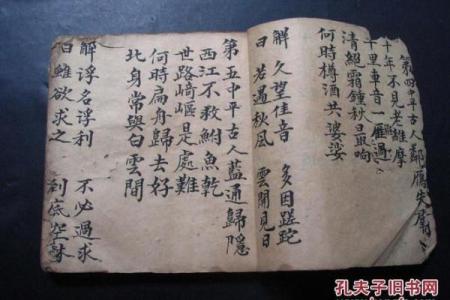 第四中平古人鄒雁失屑
十年不見老維摩
千里車音一雁過
清絕霜鍾秋最响
何時樽酒共婆娑
解 久望佳音 多因蹉跎
曰 若遇秋風 雲開見日
第五中平古人藍通歸隱
西江不救鮒魚乾
世路崎嶇是處難
何時扁舟歸去好
北身常與白雲間
解 浮名浮利 不必過求
曰 雖欲求之 到底空
孔夫子旧书网